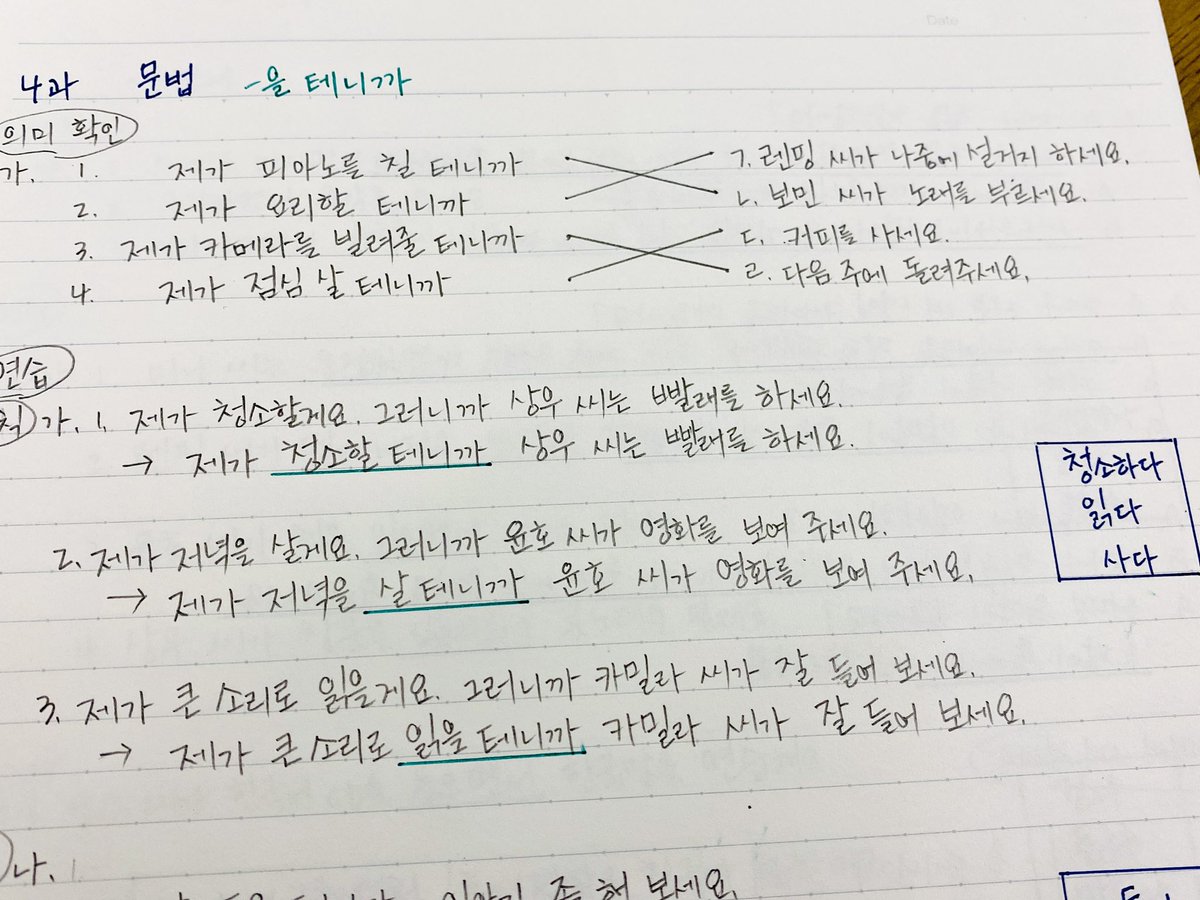 Date
4과 문법 -을 테니까
의미 확인
가. 1. 제가 피아노를 칠 테니까 ㄱ. 렌핑 씨가 나중에 설거지 하세요.
2. 제가 요리할 테니까 ㄴ. 보민 씨가 노래를 부르세요.
3. 제가 카메라를 빌려줄 테니까 ㄷ. 커피를 사세요.
4. 제가 점심 살 테니까 ㄹ. 다음 주에 돌려주세요.
연습
가. 1. 제가 청소할게요. 그러니까 상우 씨는 빨래를 하세요.
→ 제가 청소할 테니까 상우 씨는 빨래를 하세요.
청소하다
읽다
사다
2. 제가 저녁을 살게요. 그러니까 윤호 씨가 영화를 보여 주세요.
→ 제가 저녁을 살 테니까 윤호 씨가 영화를 보여 주세요.
3. 제가 큰 소리로 읽을게요. 그러니까 카밀라 씨가 잘 들어 보세요.
→ 제가 큰 소리로 읽을 테니까 카밀라 씨가 잘 들어 보세요.
나. 1
보세요.